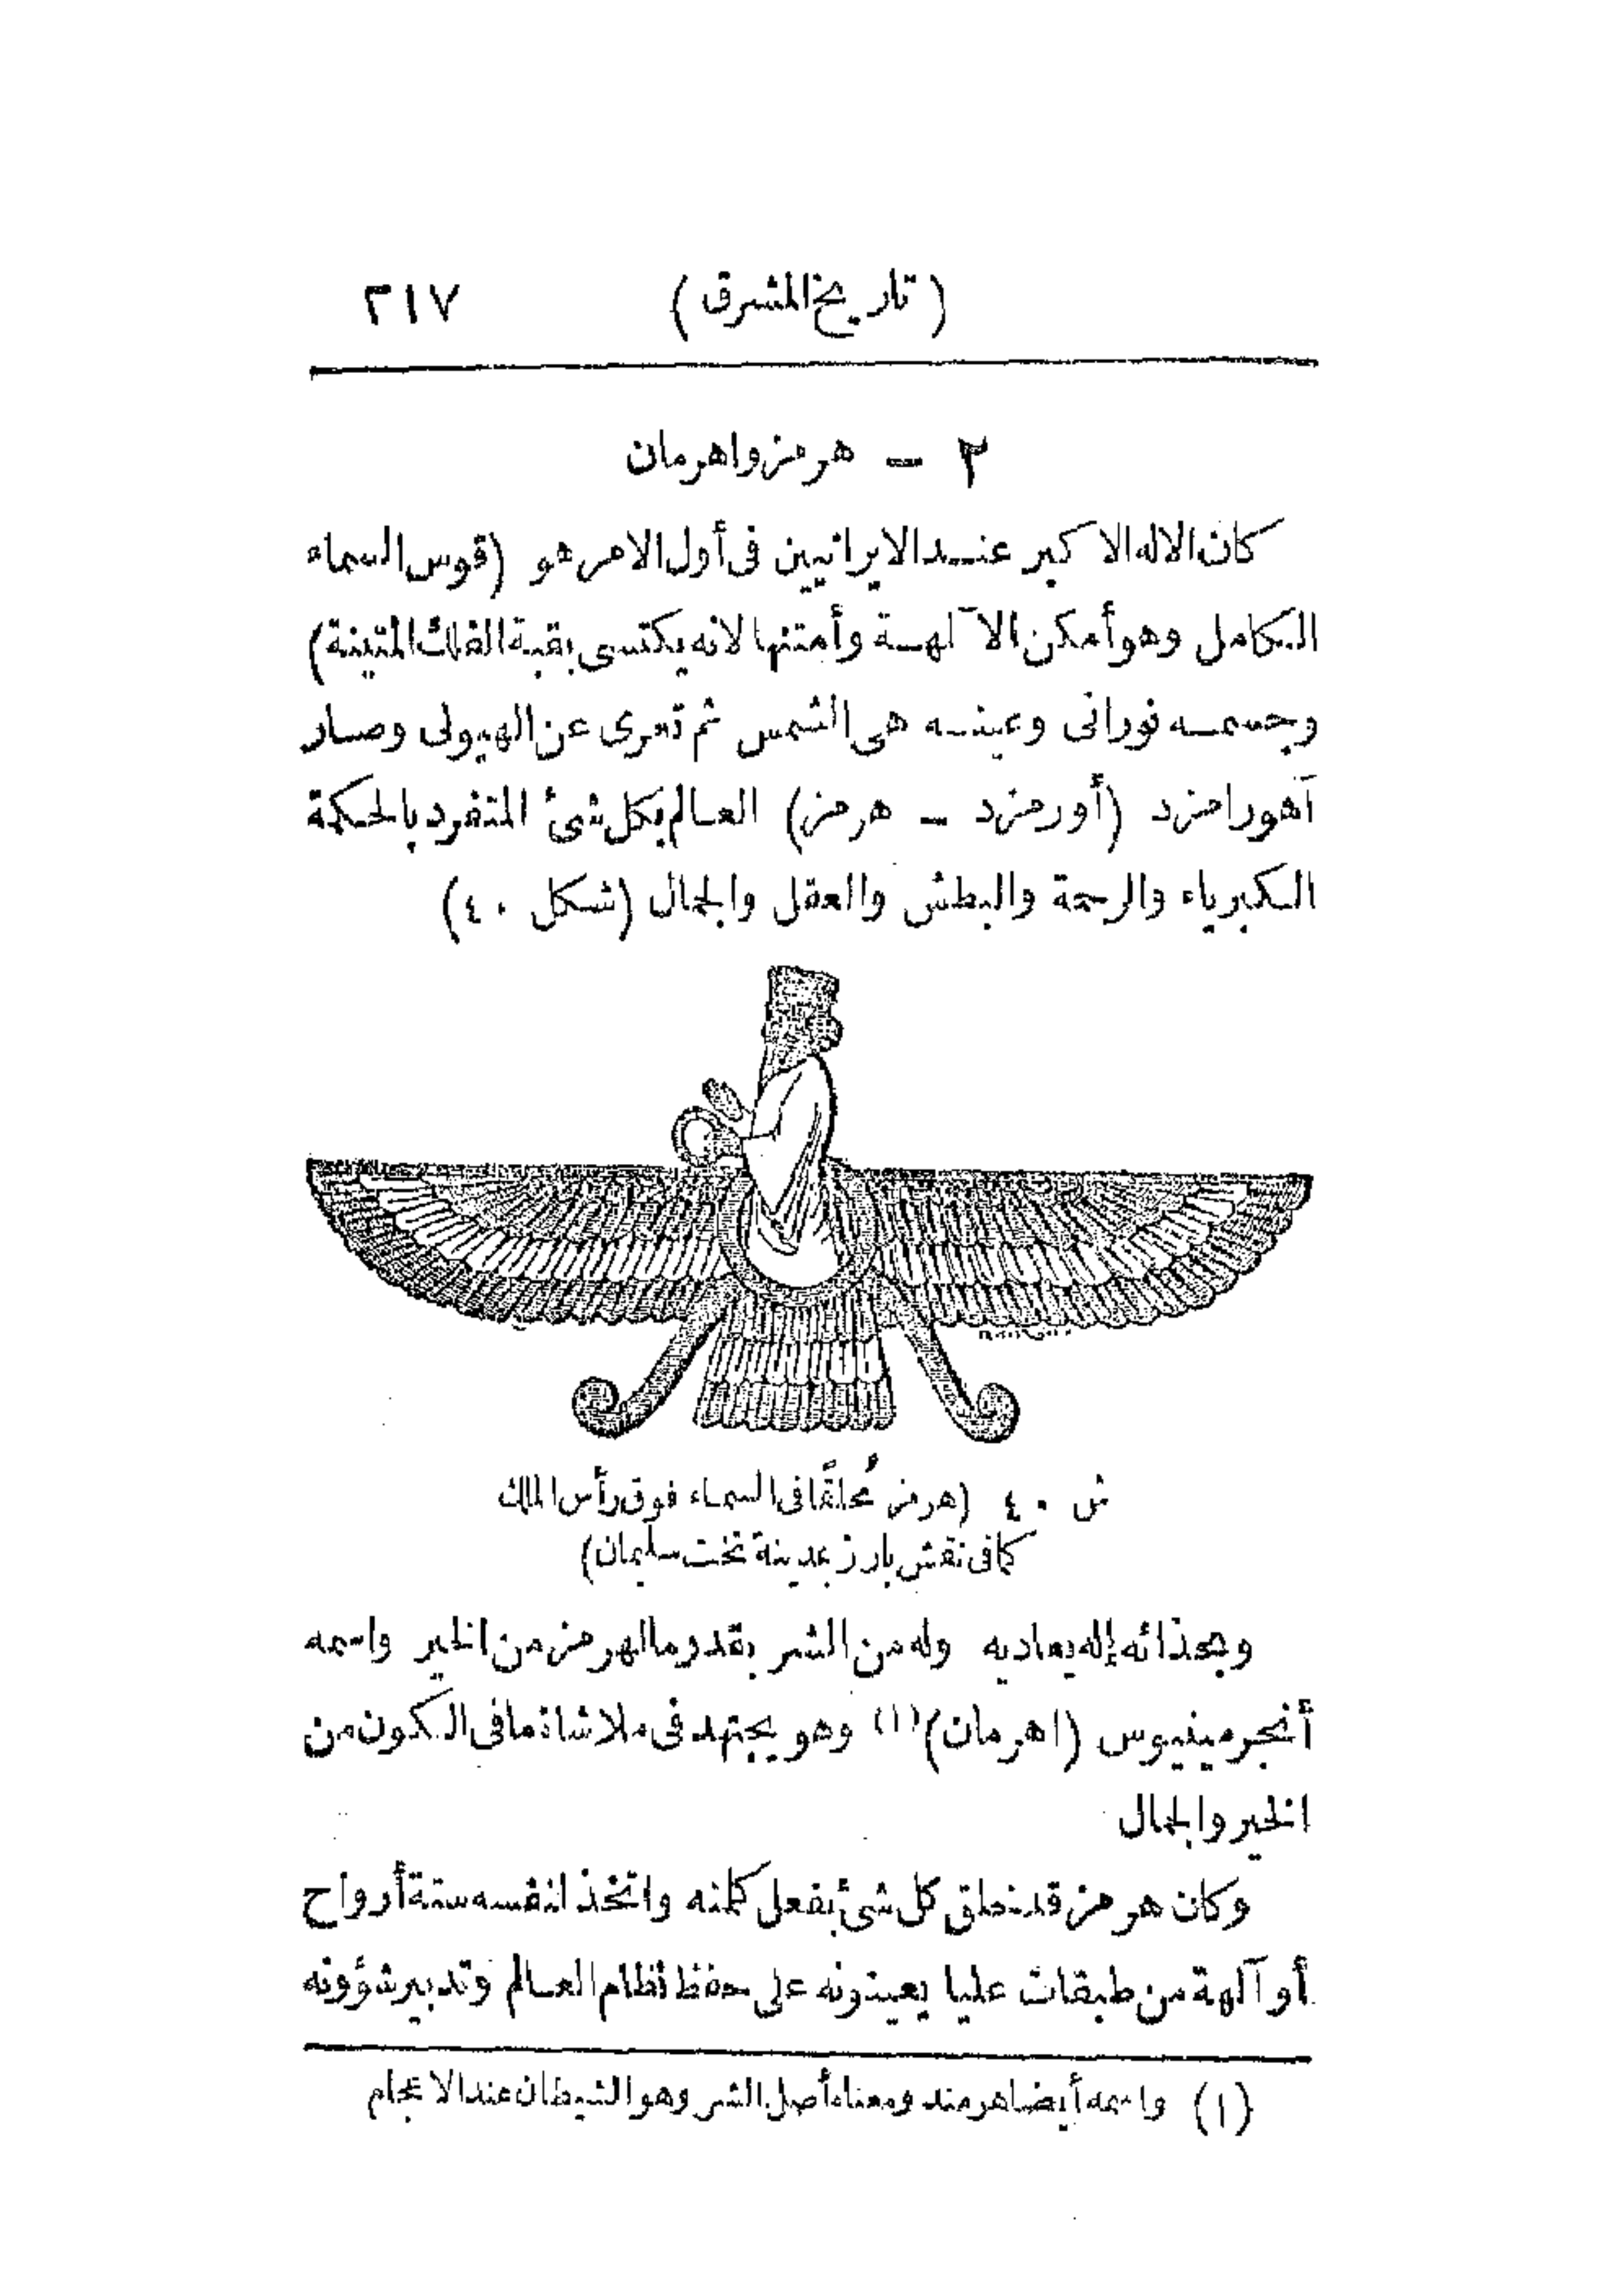 (تاريخ المشرق) ٣١٧
٢ — هرمز واهرمان
كان الاله الاكبر عند الايرانيين فى أول الامر هو (قوس السماء
الكامل وهو أمكن الآلهة وأمتنها لانه يكتسى بقبة الفلك المتينة)
وجسمه نورانى وعينه هى الشمس ثم تعرى عن الهيولى وصار
آهورامزد (أورمزد — هرمز) العالم بكل شئ المتفرد بالحكمة
الكبرياء والرحمة والبطش والعقل والجمال (شكل ٤٠)
ش ٤٠ (هرمز مُحلقًا فى السماء فوق رأس الملك
كما فى نقش بارز بمدينة تخت سليمان)
وبحذائه إله يعاديه وله من الشر بقدر ما لهرمز من الخير واسمه
أنجرمينيوس (اهرمان)(١) وهو يجتهد فى ملاشاة ما فى الكون من
الخير والجمال
وكان هرمز قد خلق كل شئ بفعل كلمته واتخذ لنفسه ستة أرواح
أو آلهة من طبقات عليا يعينونه على حفظ نظام العالم وتدبير شؤونه
(١) واسمه أيضا هرمند ومعناه أصل الشر وهو الشيطان عند الاعجام